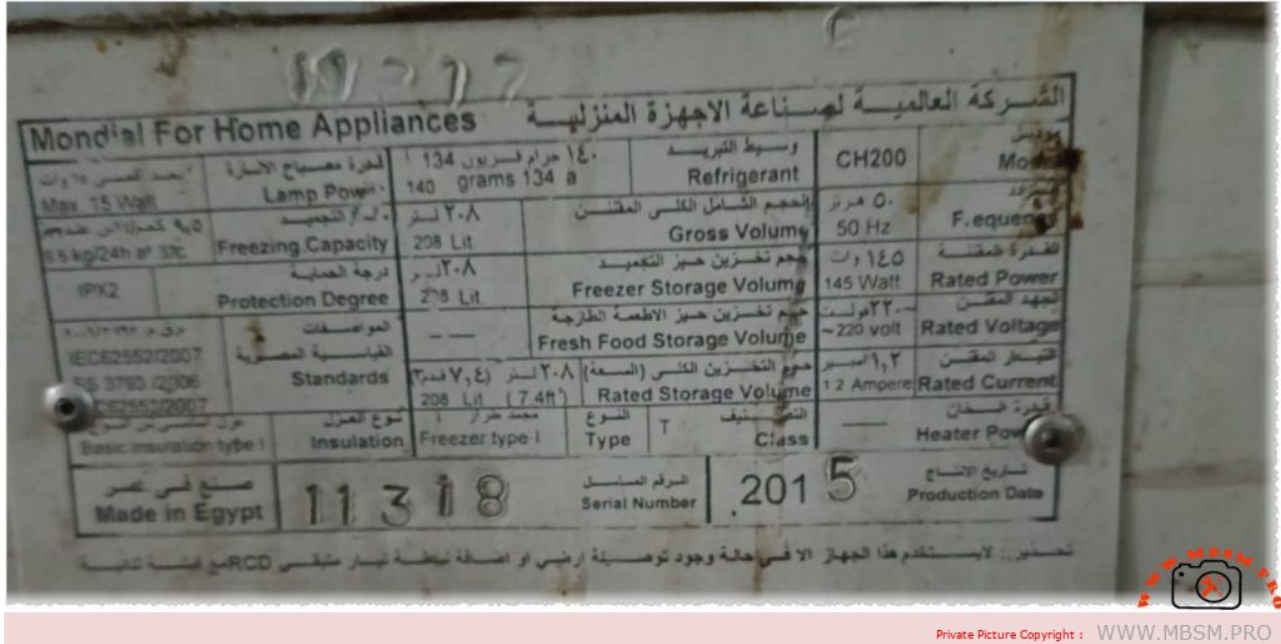 Mondial For Home Appliances الشركة العالمية لصناعة الاجهزة المنزلية
قدرة مصباح الانارة
Max. 15 Watt
Lamp Power
١٤٠ جرام فريون 134 أ
140 grams 134 a
وسيط التبريد
Refrigerant
CH200
موديل
5.5 kg/24h at 32c
Freezing Capacity
٢٠٨ لتر
208 Lit
الحجم الشامل الكلى المقنن
Gross Volume
٥٠ هرتز
50 Hz
Frequency
IPX2
درجة الحماية
Protection Degree
208 Lit
حجم تخزين حيز التجميد
Freezer Storage Volume
١٤٥ وات
145 Watt
القدرة المقننة
Rated Power
IEC62552/2007
ES 3793 /2006
المواصفات
القياسية المصرية
Standards
حجم تخزين حيز الاطعمة الطازجة
Fresh Food Storage Volume
~220 volt
الجهد المقنن
Rated Voltage
٢٠٨ لتر (٧,٤ قدم٣)
208 Lit (7.4ft³)
حجم التخزين الكلى (السعة)
Rated Storage Volume
١,٢ امبير
1 2 Ampere
التيار المقنن
Rated Current
Basic insulation type I
نوع العزل
Insulation
Freezer type I
النوع
Type
T
التصنيف
Class
قدرة السخان
Heater Power
صنع فى مصر
Made in Egypt
11318
الرقم المسلسل
Serial Number
.2015
تاريخ الانتاج
Production Date
تحذير: لايستخدم هذا الجهاز الا فى حالة وجود توصيلة ارضي او اضافة نبيطة تيار متبقى RCD مع
WWW.MBSM.PRO
Private Picture Copyright : WWW.MBSM.PRO